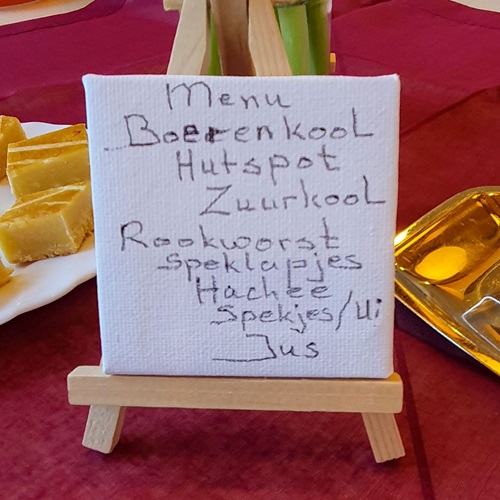 Menu
Boerenkool
Hutspot
Zuurkool
Rookworst
Speklapjes
Hachee
Spekjes/Ui
Jus